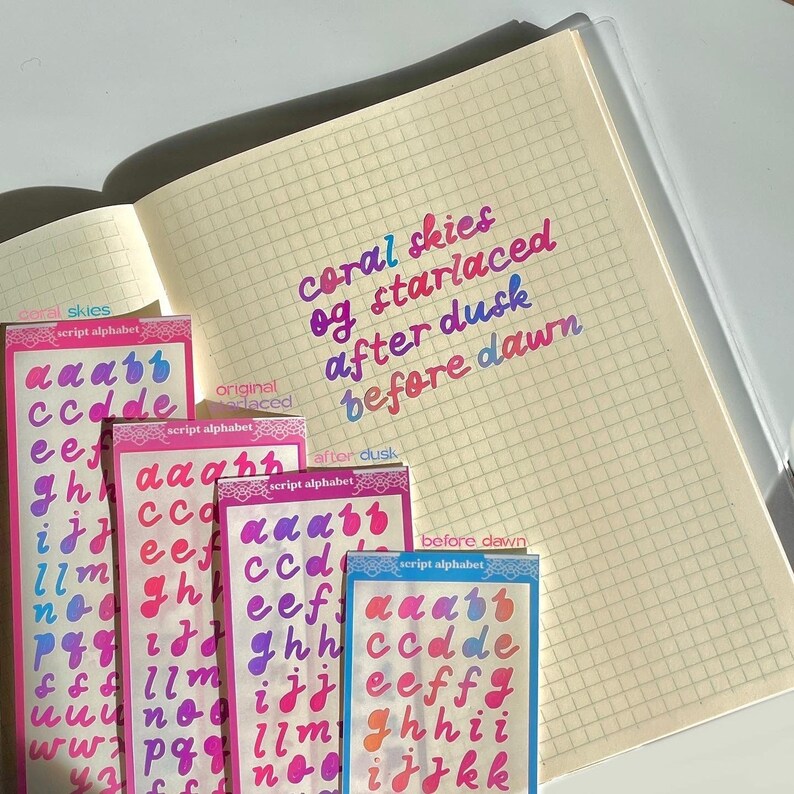 coral skies
og starlaced
after dusk
before dawn
coral skies
script alphabet
a a a b b
c c d d e
e e f
g h h
i j j
l l m
n o o
p q q
s s s
u u u
w w z
y z
original
starlaced
script alphabet
a a a b b
c c d
e e f
g h h
i j j
l l m
n o o
p q q
after dusk
script alphabet
a a a b b
c c d d e
e e f f
g h h
i j j
l l m
n o o
before dawn
script alphabet
a a a b b
c c d d e
e e f f g
g h h i i
i j j k k